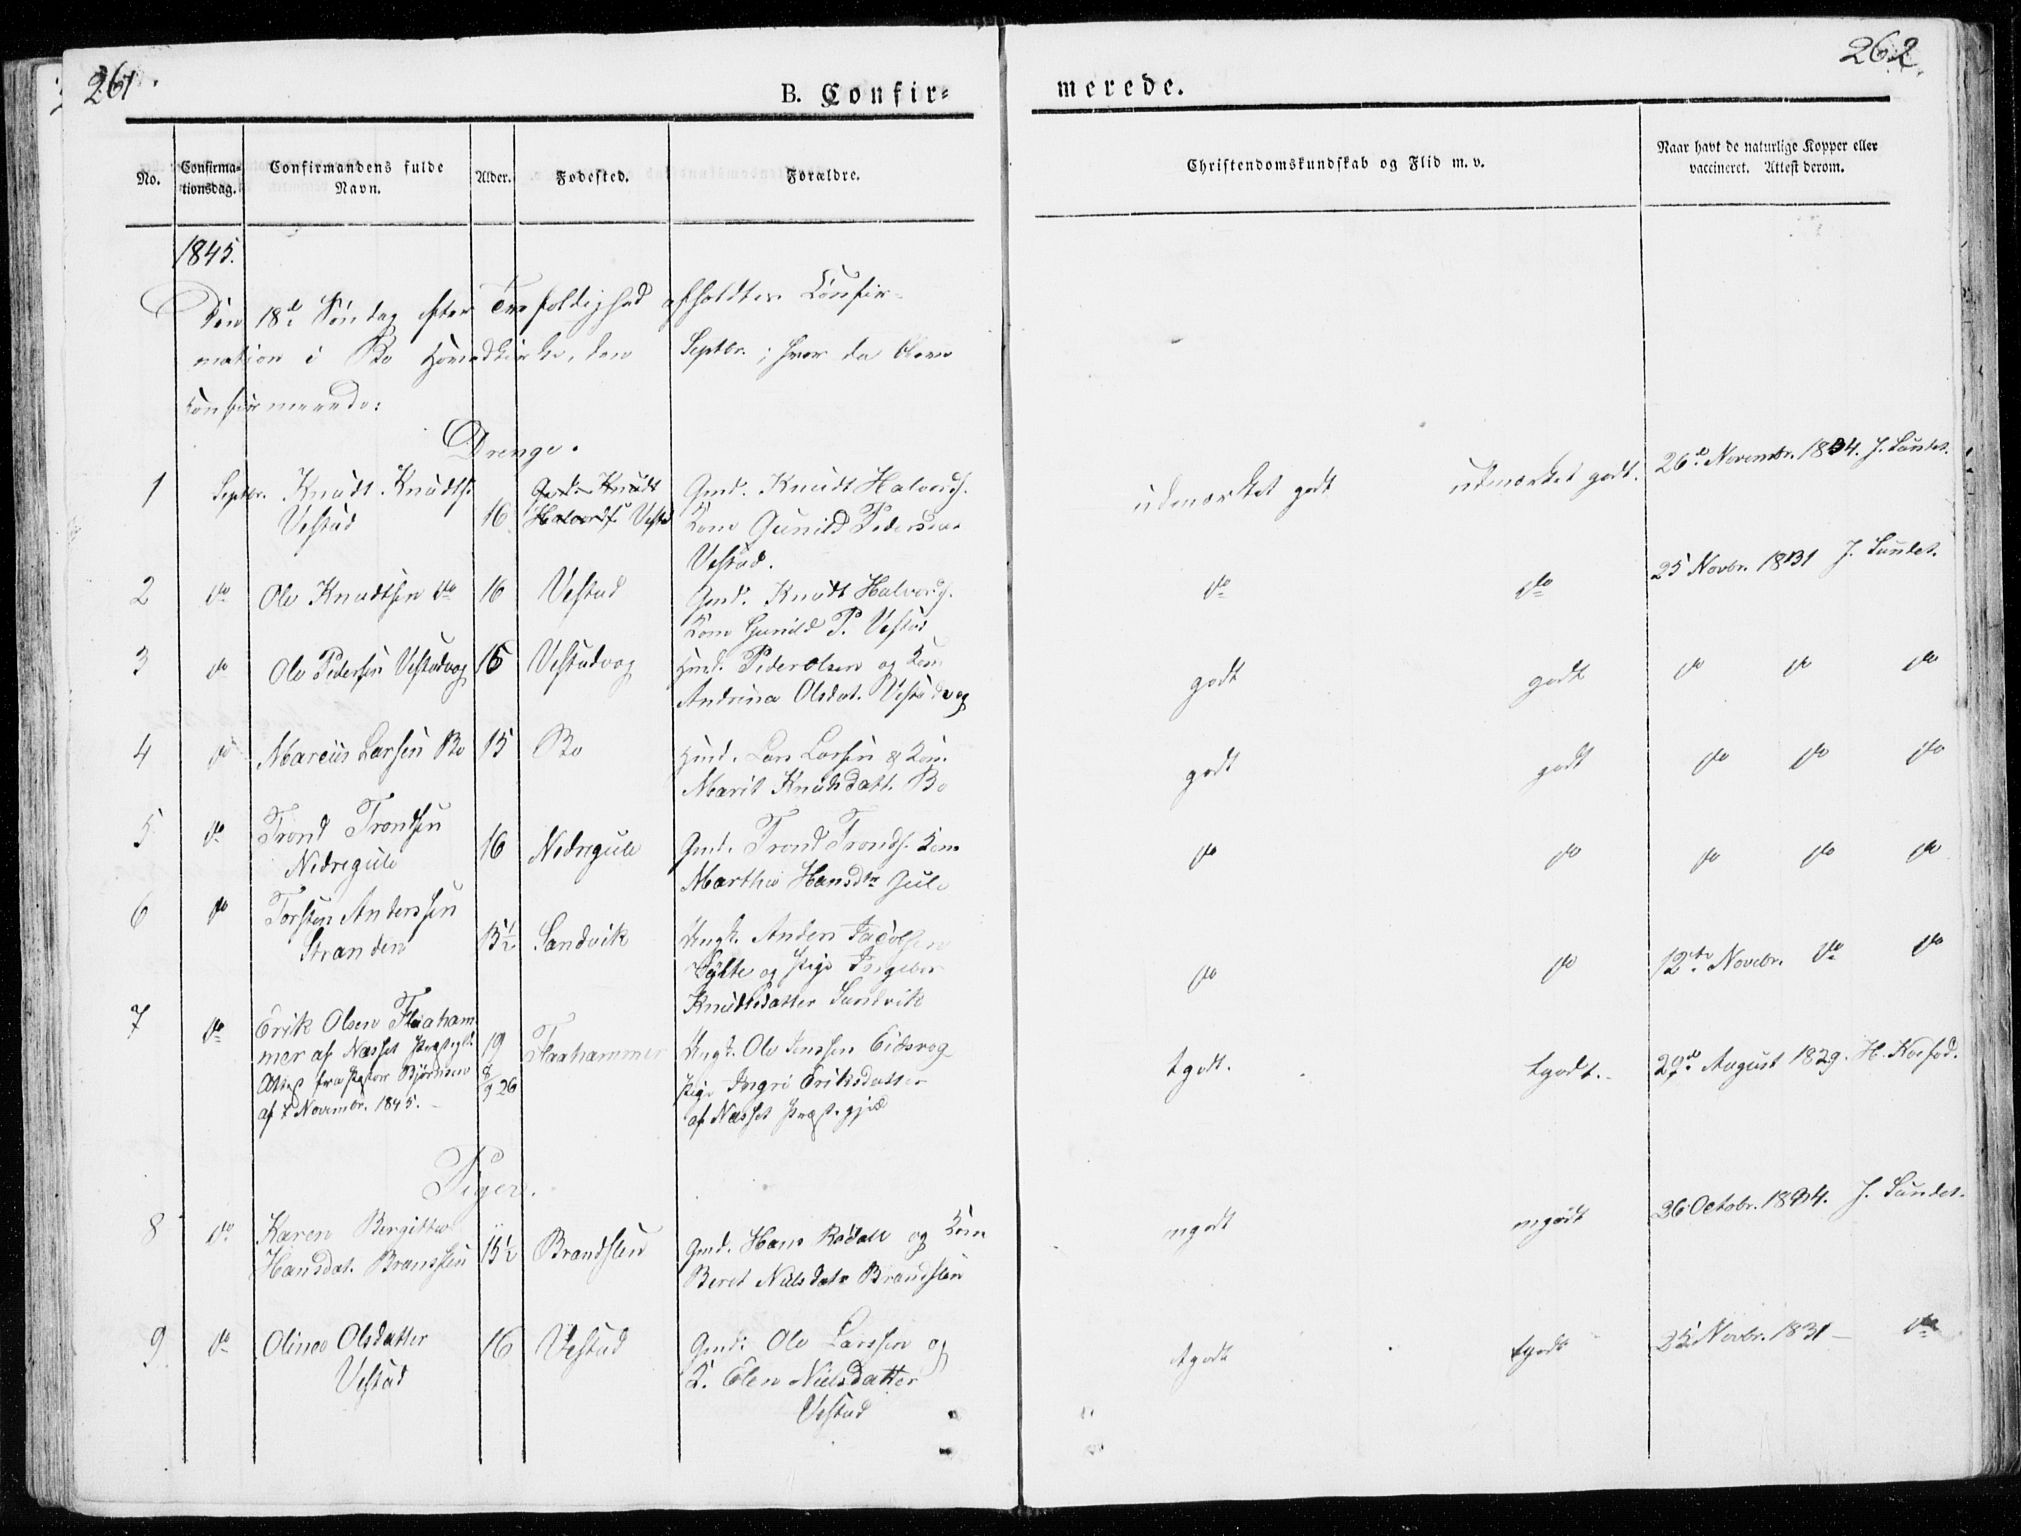 261.
262.
B. Confir=
merede.
No.
Confirma=
tionsdag.
Confirmandens fulde
Navn.
Alder.
Fødested.
Forældre.
Christendomskundskab og Flid m. v.
Naar havt de naturlige Kopper eller
vaccineret. Attest derom.
1845.
Den 18de Søndag efter Trefoldighed afholdtes Confir-
mation i Bo Hovedkirke, den Septbr. ; hvor da bleve
confirmerede:
Drenge.
1 Septbr. Knudt Knudts. 16 Gmd. Knudt Gmd. Knudt Halvords.
Vestad Halvords. Vestad Kone Gunild Pedersen
Vestad.
udmærket godt udmærket godt. 26de Novembr. 1834. J. Sundet.
2 do Ole Knudtsen do 16 Vestad Gmd. Knudt Halvords.
Kone Gunild P. Vestad
do do 25 Novbr. 1831 J. Sundet.
3 do Ole Pedersen Vestadvog 15 Vestadvog Hmd. Peder Olsen og Kone
Andrina Olsdat. Vestadvog
godt godt do do do
4 do Marcus Larsen Bo 15 Bo Hmd. Lars Larsen & Kone
Marit Knutsdatt. Bo
godt godt do do do
5 do Trond Trondsen
Nedregule 16 Nedregule Gmd. Trond Tronds. Kone
Martha Hansdtr Gule
do do do do do
6 do Torsten Anderssen
Stranden 15½ Sandvik Ungk. Anders Jacobsen
Sylte og Pige Ingebor
Knudtsdatter Sandvik
do do 12te Novebr. do do
7 do Erik Olsen Flaaham
mer af Næsset Præstegd.
Attest fra Pastor Bjørnson
af 7 Novembr. 1845.
19
8/9 26
Flaahammer Ungk. Ole Jenssen Eidsvog
Pige Ingri Eriksdatter
af Næsset Præstegjæld
tgodt. tgodt. 29de August 1829. H.
Piger.
8 do Karen Bergitta
Hansdat. Brandslien 15½ Brandslien Gmd. Hans Rødall og Kone
Beret Nielsdatr Brandslien
mgodt mgodt 26 Octobr. 1834. J. Sundet.
9 do Olina Olsdatter
Vestad 16 Vestad Gmd. Ole Larssen og
K. Elen Nielsdatter
Vestad
tgodt tgodt 25 Novbr. 1831 – do